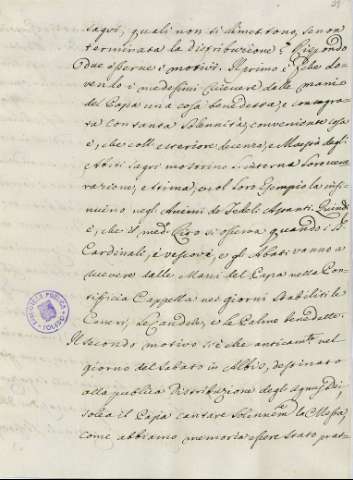 sagri, quali non si dimettono, se non
terminata la distribuzione? Rispondo
due esserne i motivi. Il primo è perche do-
vendo i medesimi ricevere dalle mani
del Papa una cosa benedetta, e consagra-
ta con tanta solennità, conveniente cosa
è, che coll'esterior decenza, e Maestà degli
Abiti sagri mostrino l'interna loro vene-
razione, e stima, e col loro esempio la insi-
nuino negli Animi de Fedeli Astanti. Quindi
è, che il med.º Rito si osserva quando i SS.
Cardinali, e Vescovi, e gli Abati vanno a
ricevere dalle Mani del Papa nella Pon-
tificia Cappella nei giorni stabiliti le
Ceneri, le Candele, e le Palme benedette.
Il secondo motivo si è che anticam.te nel
giorno del Sabato in Albis, destinato
alla publica Distribuzione degli Agnus Dei,
solea il Papa cantare solennem.te la Messa,
come abbiamo memoria essere stato prat-